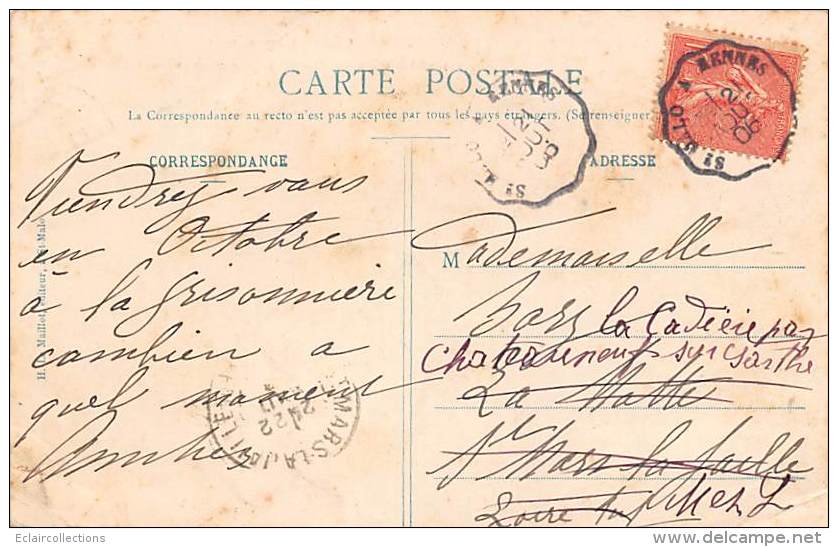 CARTE POSTALE
La Correspondance au recto n'est pas acceptée par tous les pays étrangers. (Se renseigner
CORRESPONDANCE
ADRESSE
RENNES
ST MALO
RENNES
ST MALO
Viendrez vous
en Octobre
à la Grisonnière
combien a
quel moment
Mademoiselle
la Cadèrie par
Chateauneuf sur Sarthe
La Motte
St Mars la Jaille
Loire Inf
H. Maillot, éditeur, St-Malo
ST MARS-LA-JAILLE
Eclaircollections
delcampe.net